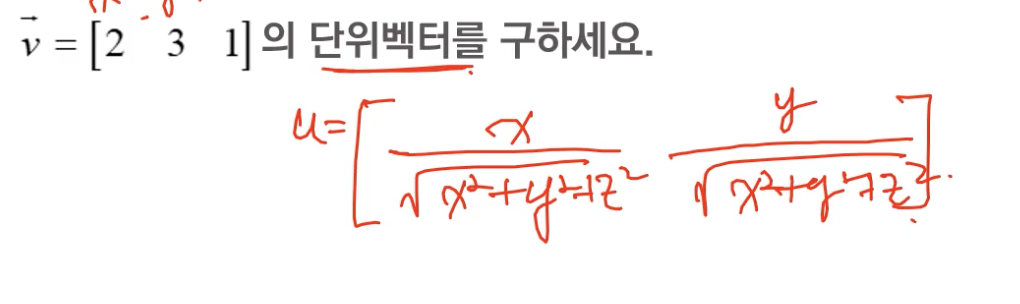 v⃗ = [2 3 1] 의 단위벡터를 구하세요.
u = [ x / √(x²+y²+z²)  y / √(x²+y²+z²) ]